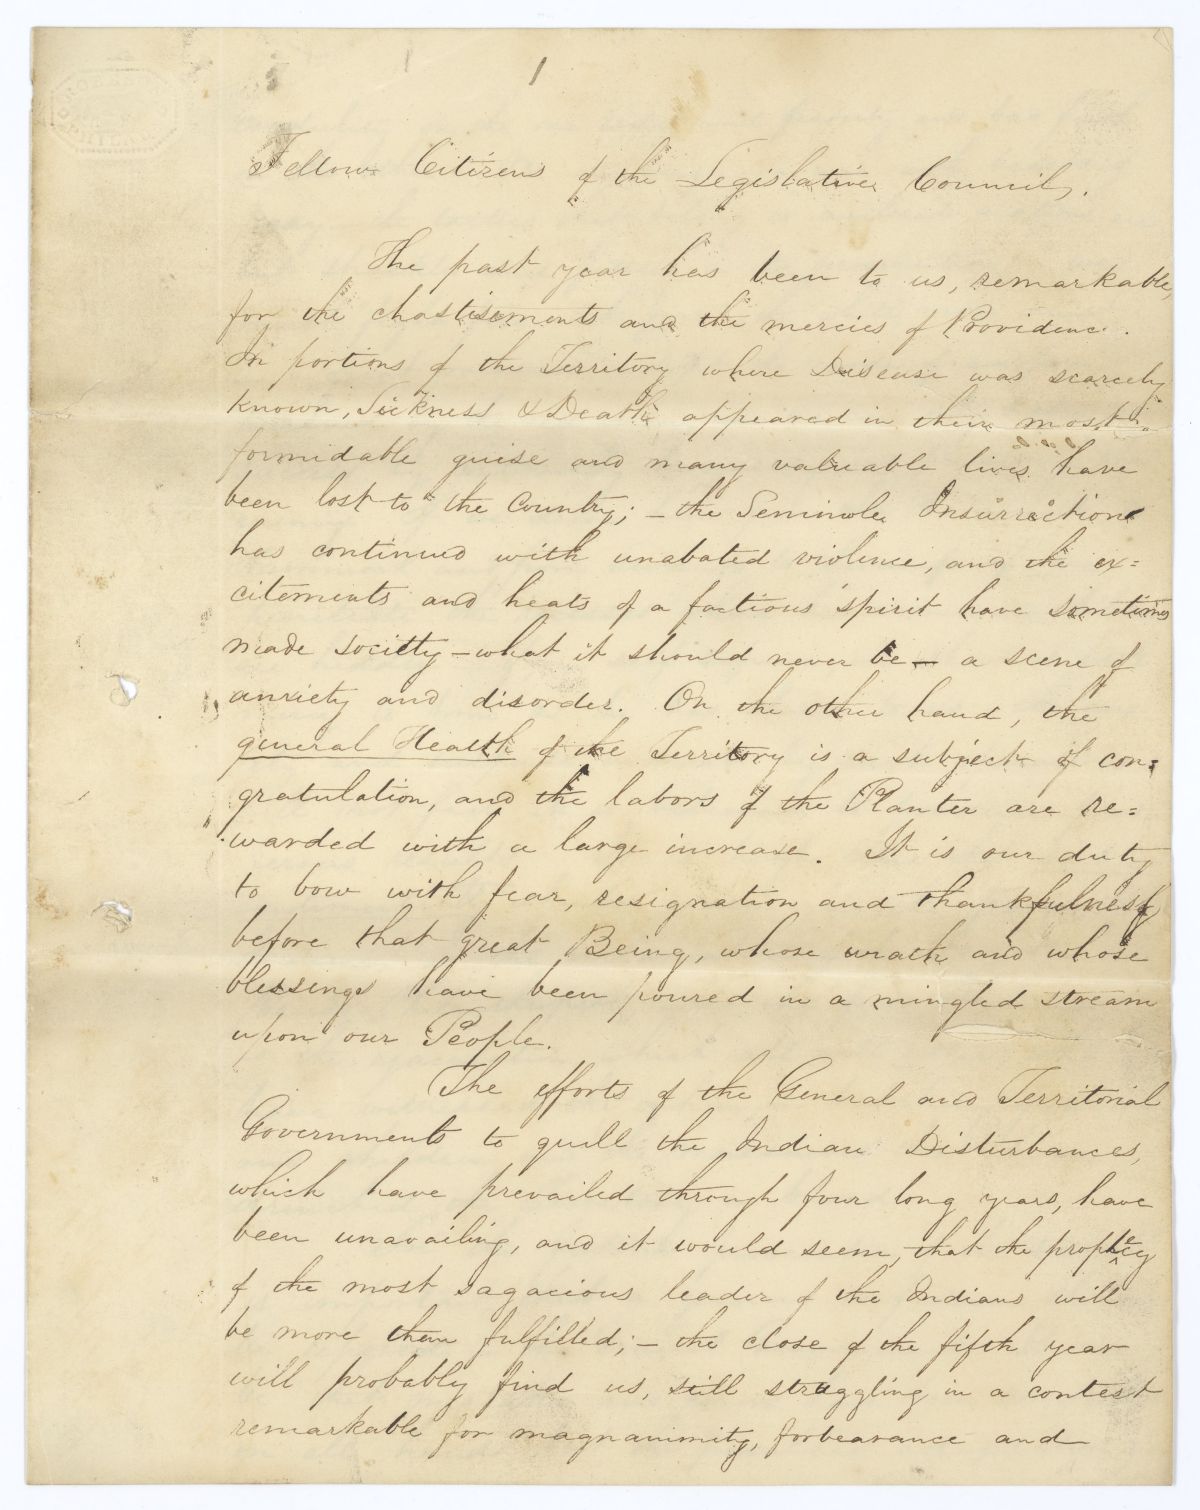 1
Fellow Citizens of the Legislative Council,.
The past year has been to us, remarkable,
for the chastisements and the mercies of Providence.
In portions of the Territory where Disease was scarcely
known, Sickness & Death appeared in their most
formidable guise and many valuable lives have
been lost to the Country; – the Seminole Insurrection
has continued with unabated violence, and the ex=
citements and heats of a factious spirit have sometimes
made society – what it should never be – a scene of
anxiety and disorder. On the other hand, the
general Health of the Territory is a subject of con=
gratulation, and the labors of the Planter are re=
warded with a large increase. It is our duty
to bow with fear, resignation and thankfulness
before that great Being, whose wrath and whose
blessings have been poured in a mingled stream
upon our People.
The efforts of the General and Territorial
Governments to quell the Indian Disturbances,
which have prevailed through four long years, have
been unavailing, and it would seem, that the prophecy
of the most sagacious leader of the Indians will
be more than fulfilled; – the close of the fifth year
will probably find us, still struggling in a contest
remarkable for magnanimity, forbearance and